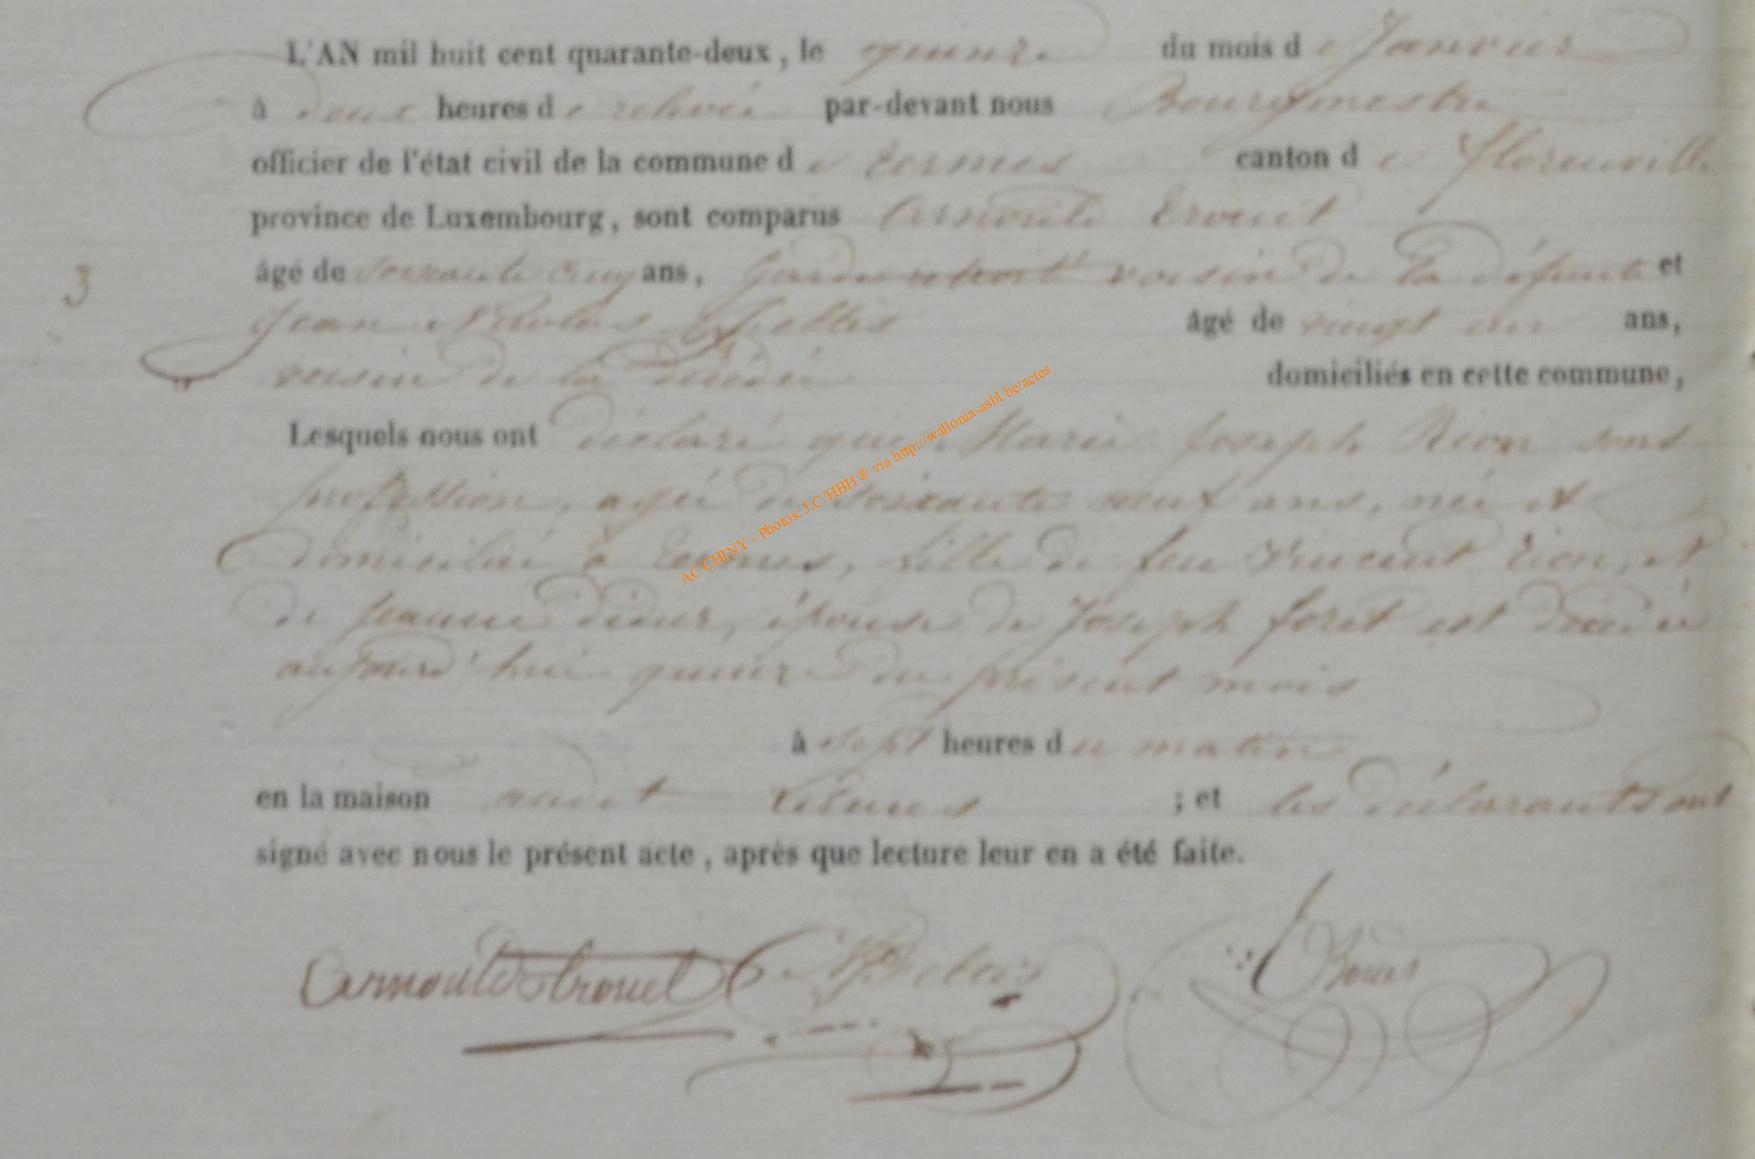 L'AN mil huit cent quarante-deux, le quinze du mois de Janvier
à deux heures de relevée par-devant nous Bourgmestre
officier de l'état civil de la commune de termes canton de florenville
province de Luxembourg, sont comparus Arnould
3 âgé de soixante cinq ans, Garde voisin de la défunte et
Jean Nicolas âgé de vingt un ans,
voisin de la décédée domiciliés en cette commune,
Lesquels nous ont déclaré que Marie Joseph Rion sans
profession, agée de soixante neuf ans, née et
domiciliée à termes, fille de feu Vincent rion, et
de jeanne didier, épouse de Joseph foret est décédée
aujourd'hui quinze du présent mois
à sept heures du matin
en la maison audit ; et les déclarants ont
signé avec nous le présent acte, après que lecture leur en a été faite.
AC CHINY - Photos: J.C/HBH ® via http://wallonia-asbl.be/actes